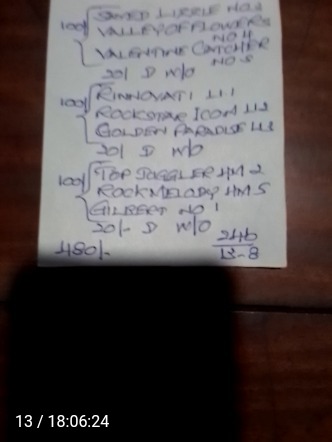 100/ SPEED LIZZIE NO.2
VALLEY OF FLOWERS
NO 4
VALENTINE CATCHER
NO 5
20/ D W/O
100/ RINNOVATI 111
ROCKSTAR ICON 112
GOLDEN PARADISE 113
20/ D W/O
100/ TOP JUGGLER HM 2
ROCKMELODY HM 5
GILBERT NO 1
20/- D W/O
480/-
246
13-8
13 / 18:06:24